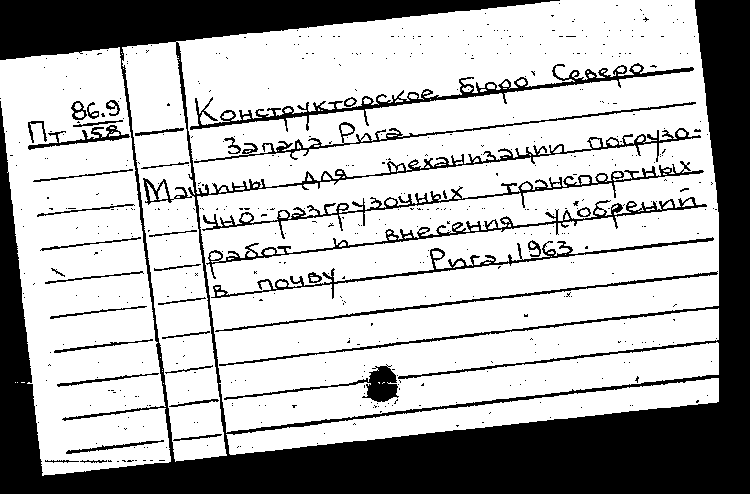 Пт 86.9/158
Конструкторское бюро Северо-
Запада. Рига.
Машины для механизации погрузо-
чно-разгрузочных транспортных
работ и внесения удобрений
в почву. Рига, 1963.